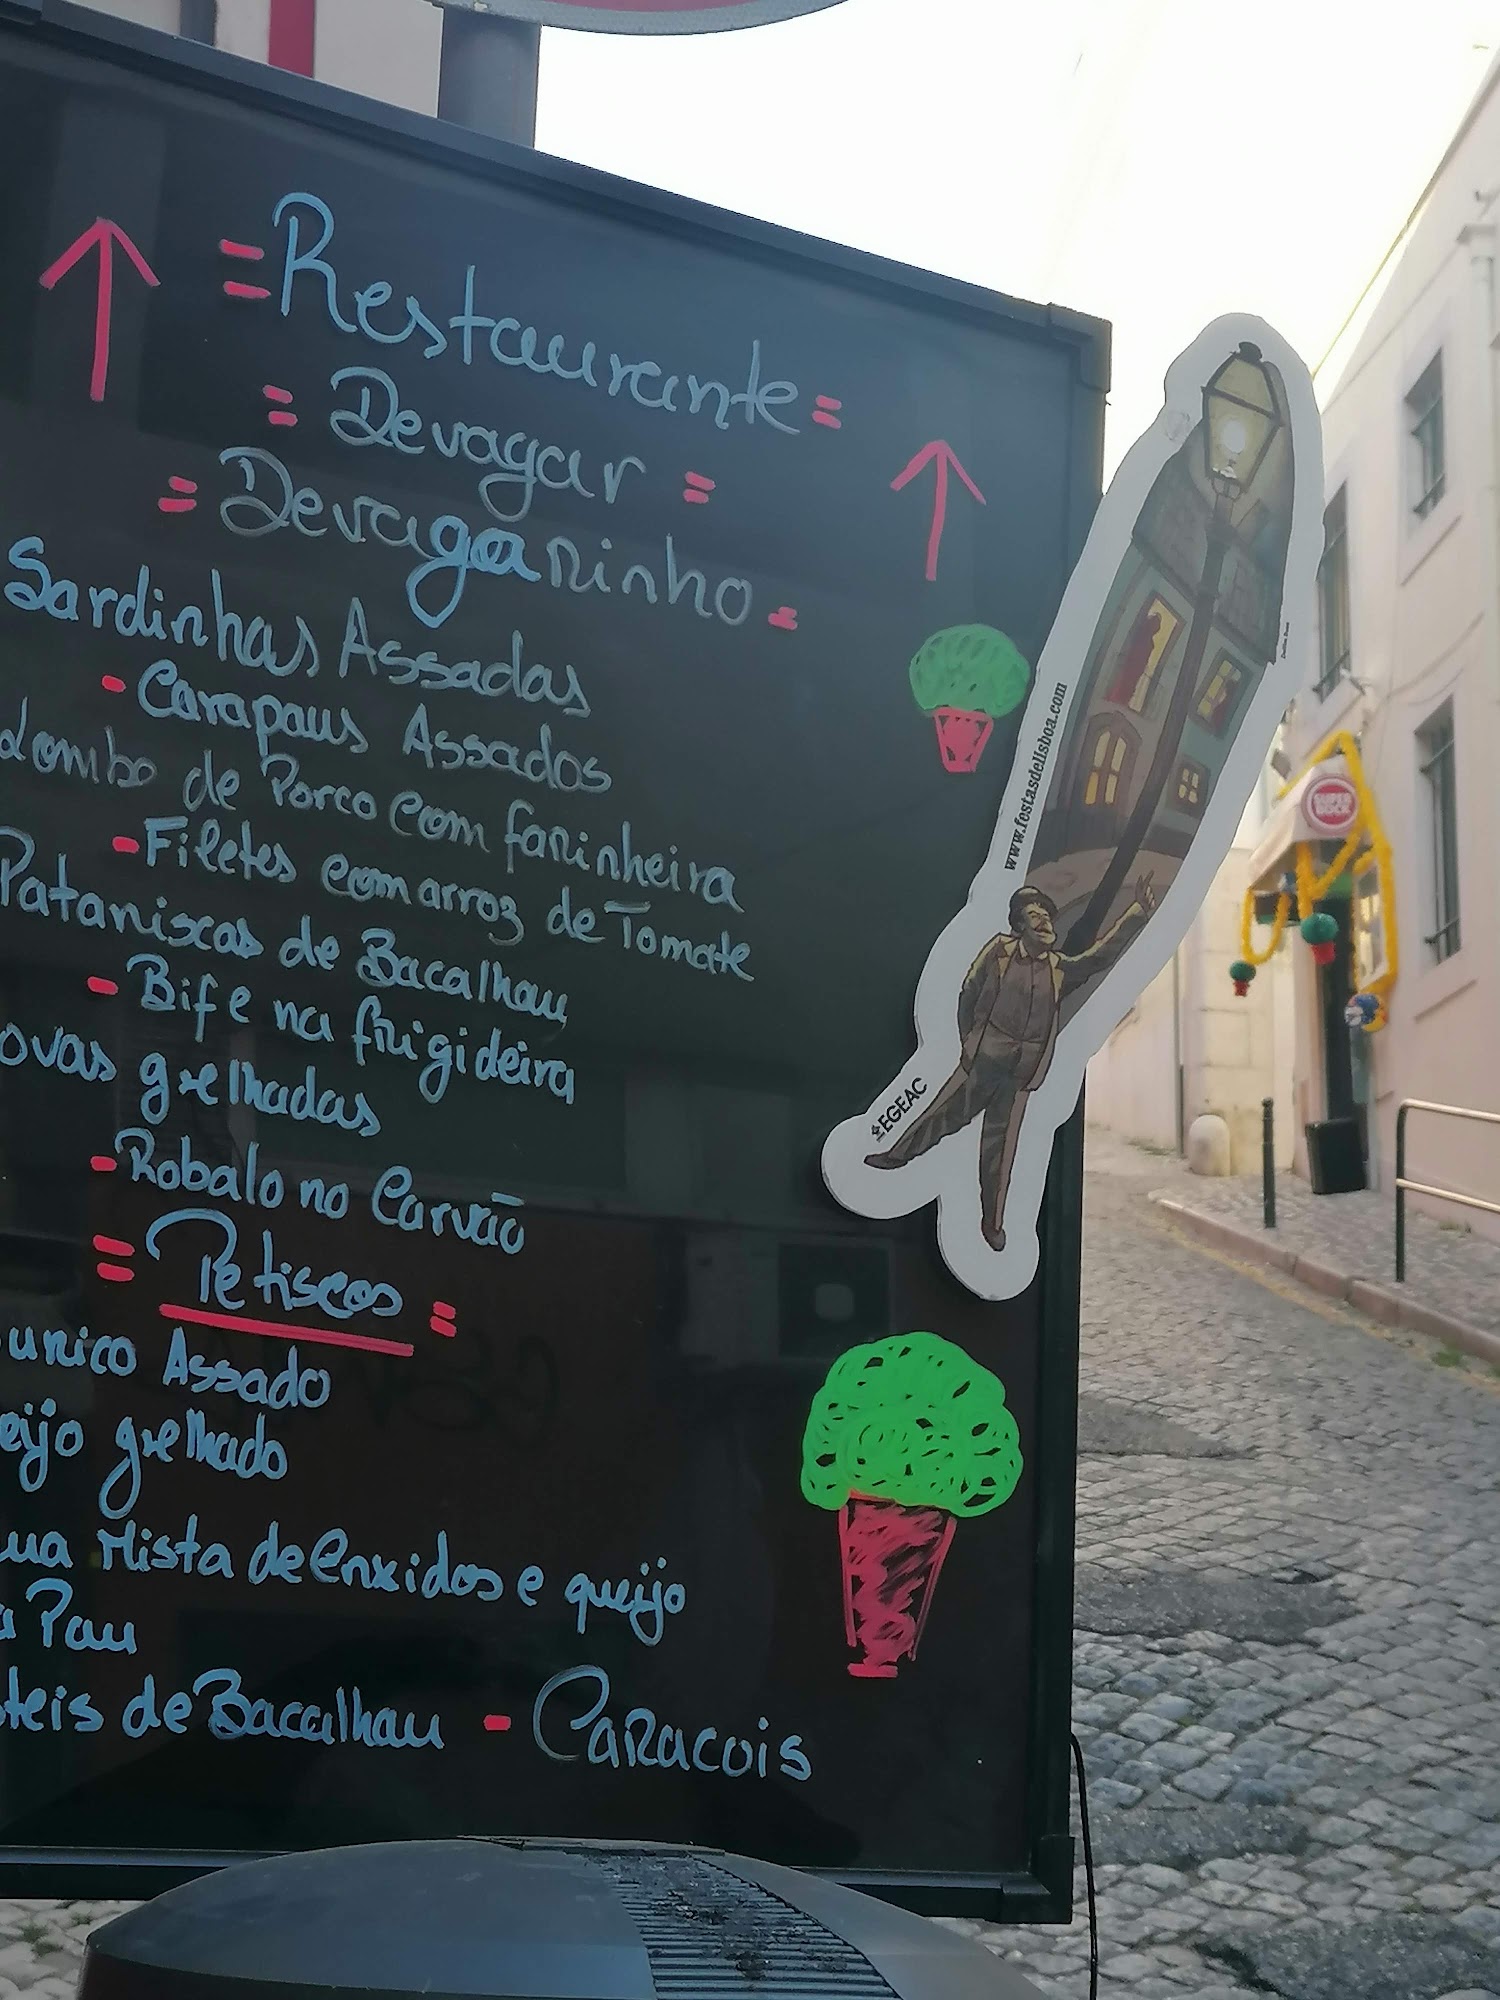 = Restaurante =
= Devagar =
= Devagarinho =
Sardinhas Assadas
- Carapaus Assados
Lombo de Porco com farinheira
- Filetes com arroz de Tomate
Pataniscas de Bacalhau
- Bife na frigideira
ovas grelhadas
- Robalo no Carvão
= Petiscos =
ouriço Assado
eijo grelhado
ua Mista de Enxidos e queijo
a Pau
steis de Bacalhau - Caracois
www.festasdelisboa.com
EGEAC
SUPER BOCK